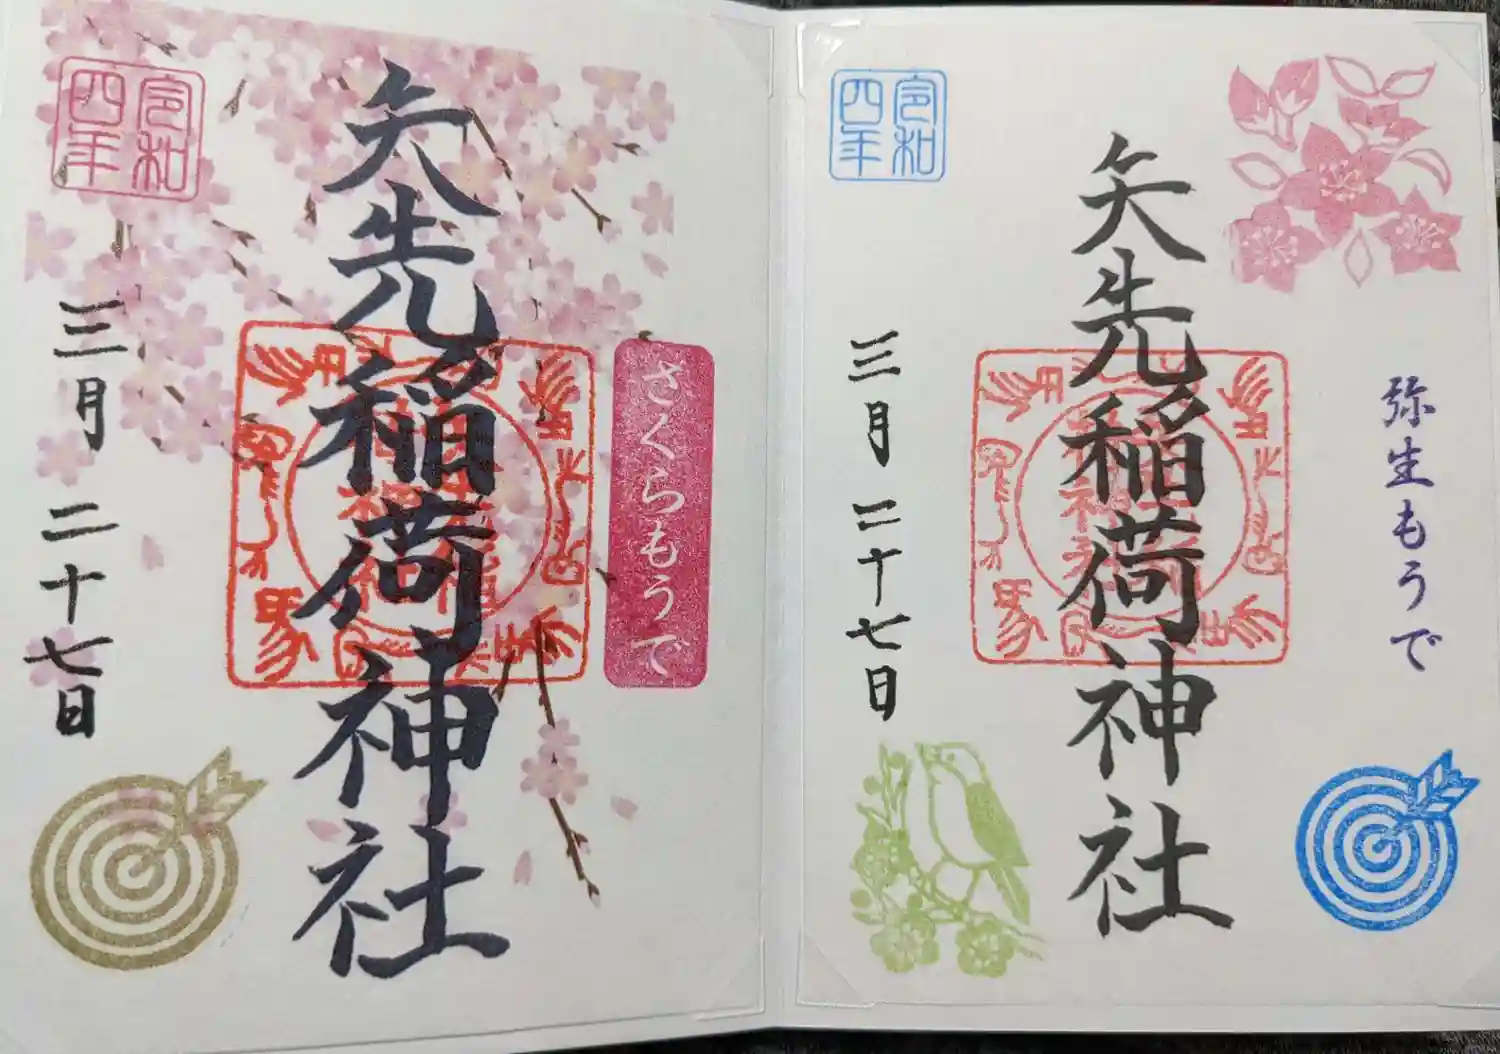 令和
四年
矢先稲荷神社
さくらもうで
三月二十七日
弥生もうで
矢先稲荷神社
令和
四年
三月二十七日